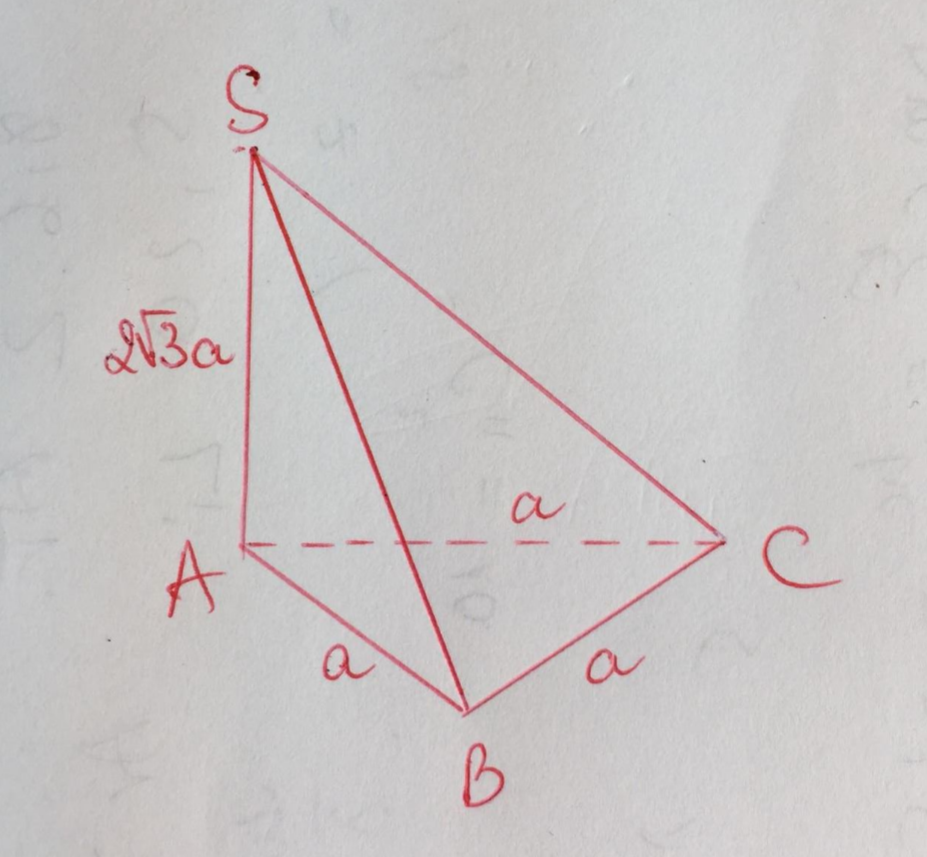 S
2√3a
a
A
C
a
a
B